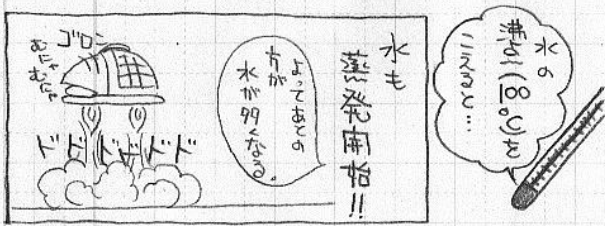 水の
沸点(100℃)を
こえると…
水も
蒸発開始!!
よってあとの
方が
水が多くなる。
ゴロン
むにゃ
むにゃ
ドドドドドド